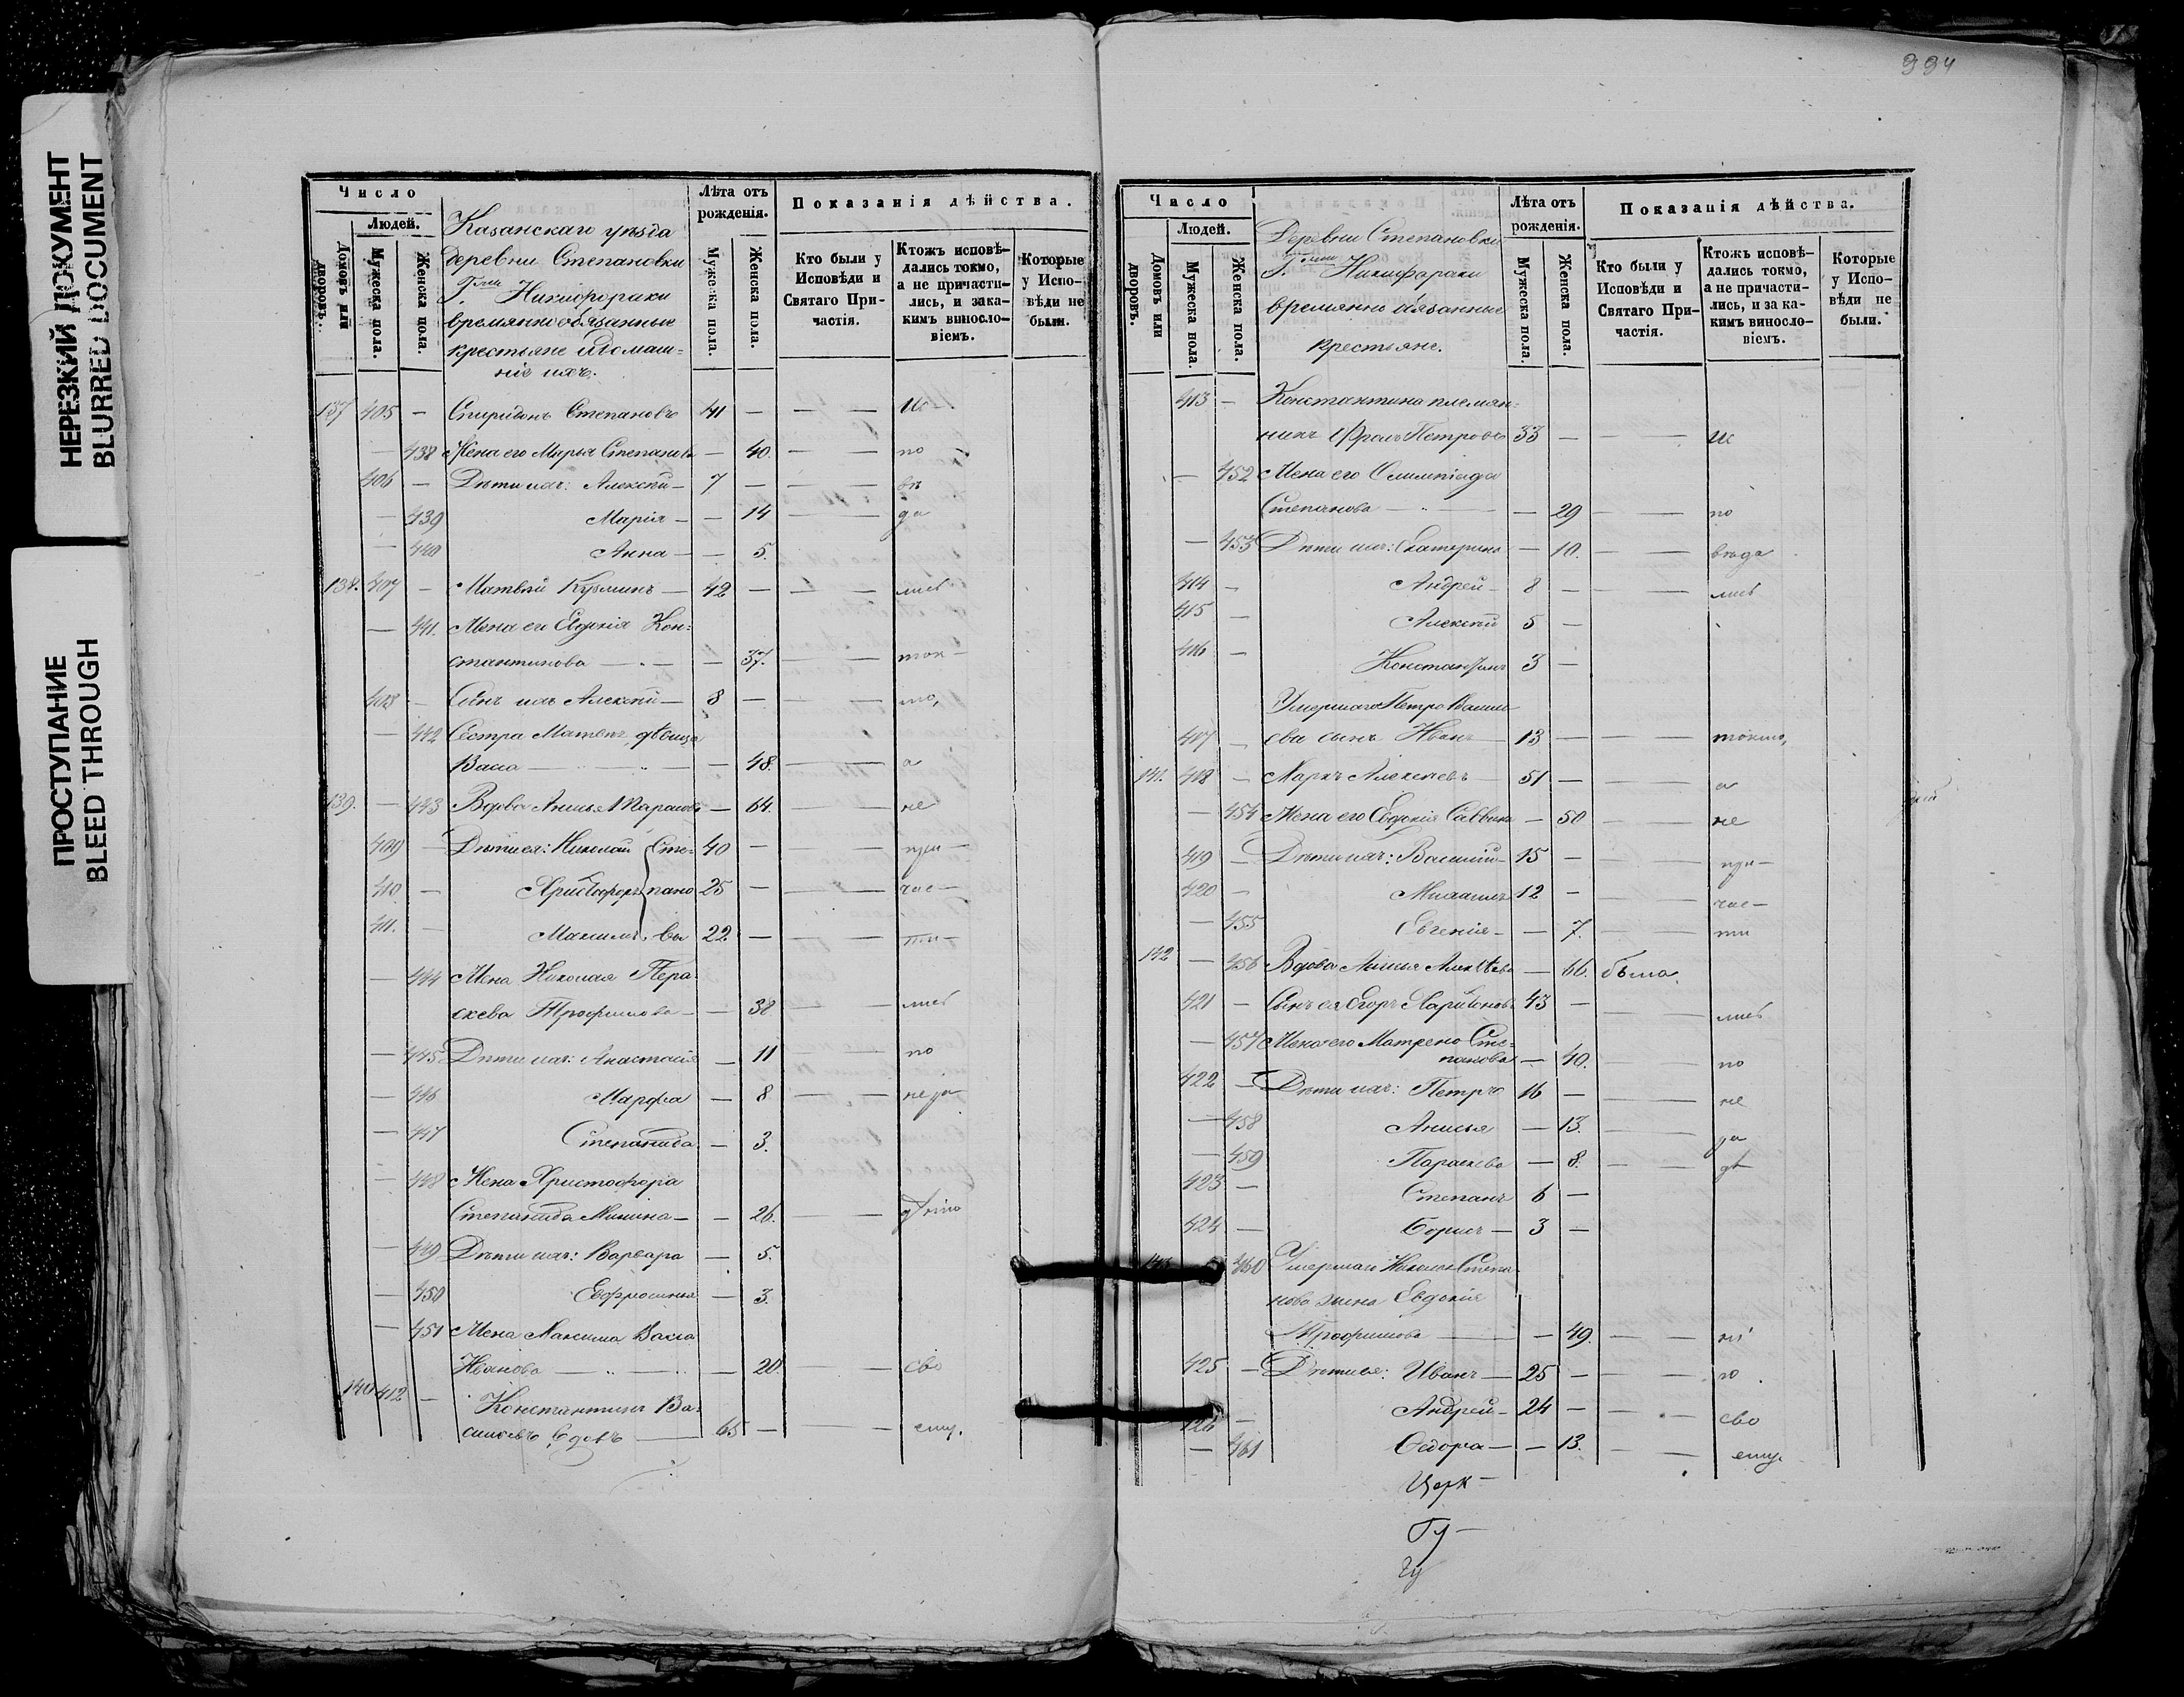 994
НЕРЕЗКИЙ ДОКУМЕНТ
BLURRED DOCUMENT
ПРОСТУПАНИЕ
BLEED THROUGH
Число
Людей.
Домовъ или дворовъ.
Мужеска пола.
Женска пола.
Казанскаго уѣзда
деревни Степановки
Г.жи Никифораки
времянно обязанные
крестьяне и домаш-
ніе ихъ.
Лѣта отъ рожденія.
Мужеска пола.
Женска пола.
Показанія дѣйства.
Кто были у Исповѣди и Святаго Причастія.
Ктожъ исповѣдались токмо, а не причастились, и за какимъ винословіемъ.
Которые у Исповѣди не были.
137 405 — Спиридонъ Степановъ 41 — — — Ис
— 438 Жена его Марья Степанова — 40. — — по
406 — Дѣти ихъ: Алексѣй — 7 — — — вѣ
— 439 Марія — — 14 — — да
— 440 Анна — — 5.
138. 407 — Матвѣй Кузминъ — 42 — — — лись
— 441. Жена его Евдокія Кон-
стантинова — — 37. — — ток-
408 — Сынъ ихъ Алексѣй — 8 — — — мо,
— 442 Сестра Матвѣя, дѣвица
Васса — — 48. — — а
139. — 443 Вдова Анисья — 64. — — не
409 — Дѣти ея: Николай Сте- 40 — — — при-
410 — Христофоръ пано 25 — — — час-
411. — Максимъ вы 22 — — — ти-
— 444 Жена Николая Пара-
скева Трофимова — — 38 — — лись
— 445 Дѣти ихъ: Анастасія — 11 — — по
— 446 Марфа — 8 — — нера
— 447 Степанида — 3.
— 448 Жена Христофора
Степанида Минина — — 26. — — дѣнію
— 449 Дѣти ихъ: Варвара — 5.
— 450 Евфросинья — 3.
— 451 Жена Максима Васса
Иванова — — 20. — — сво
140 412 — Константинъ Ва-
сильевъ, вдовъ — 65 — — — ему.
Число
Людей.
Домовъ или дворовъ.
Мужеска пола.
Женска пола.
Деревни Степановки
Г.жи Никифораки
времянно обязанные
крестьяне.
Лѣта отъ рожденія.
Мужеска пола.
Женска пола.
Показанія дѣйства.
Кто были у Исповѣди и Святаго Причастія.
Ктожъ исповѣдались токмо, а не причастились, и за какимъ винословіемъ.
Которые у Исповѣди не были.
413 — Константина племян-
никъ Фролъ Петровъ 33 — — — ис
— 452 Жена его Олимпіада
Степанова — — 29 — — по
— 453 Дѣти ихъ: Екатерина — 10. — — вѣда
414 — Андрей — 8 — — — лись
415 — Алексѣй 5 —
416 — Константинъ 3 —
Умершаго Петра Васили-
417 — ева сынъ Иванъ — 13 — — — токмо,
141. 418 — Маркъ Алексѣевъ — 51 — — — а
— 454 Жена его Евдокія Саввина — 50 — — не
419 — Дѣти ихъ: Василій — 15 — — — при-
420 — Михаилъ 12 — — — час-
— 455 Евгенія — — 7. — — ти
142 — 456 Вдова Анисья Алексѣева — 66. была.
421 — Сынъ ея Егоръ Ларіоновъ 43 — — — лись
— 457 Жена его Матрена Сте-
панова — 40. — — по
422 — Дѣти ихъ: Петръ 16 — — — не
— 458 Анисья — 13. — — ра
— 459 Параскева — 8. — — дѣ
423 — Степанъ 6 —
424 — Борисъ — 3 —
143 460 Умершаго Николая Степа-
нова жена Евдокія
Трофимова — — 49. — — ні
425 — Дѣти ея: Иванъ — 25 — — — ю
426 — Андрей — 24 — — — сво
— 461 Ѳедора — — 13. — — ему.
Церк-